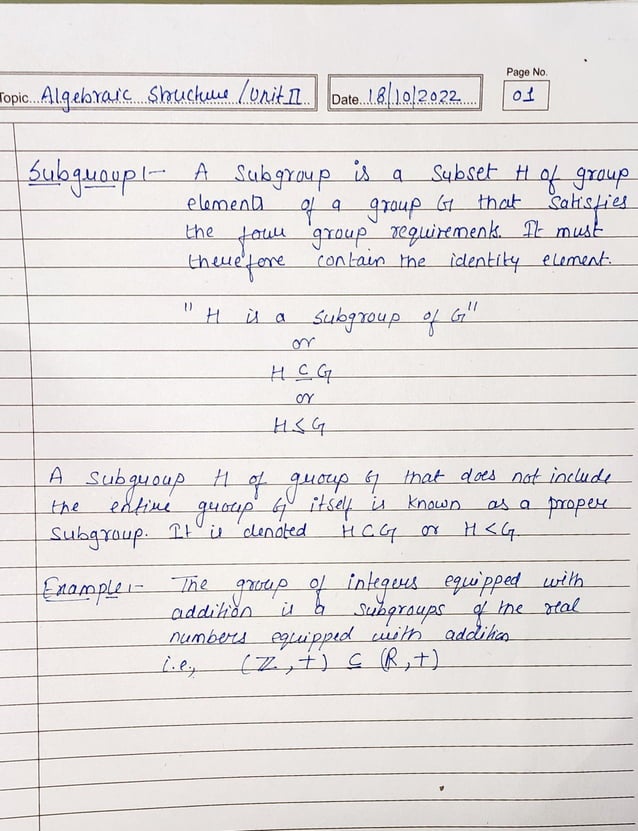 Page No.
Topic...Algebraic Structure / Unit II
Date...18/10/2022
01
Subgroup:- A Subgroup is a Subset H of group
elements of a group G that satisfies
the four group requirements. It must
therefore contain the identity element.
"H is a subgroup of G"
or
H ⊆ G
or
H ≤ G
A subgroup H of group G that does not include
the entire group G itself is known as a proper
Subgroup. It is denoted H ⊂ G or H < G.
Example:- The group of integers equipped with
addition is a subgroups of the real
numbers equipped with addition
i.e., (ℤ, +) ⊆ (R, +)